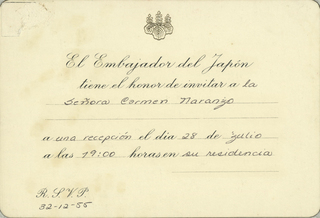 El Embajador del Japón
tiene el honor de invitar a la
Señora Carmen Naranjo
a una recepción el día 28 de julio
a las 19:00 horas en su residencia
R.S.V.P.
32-12-55